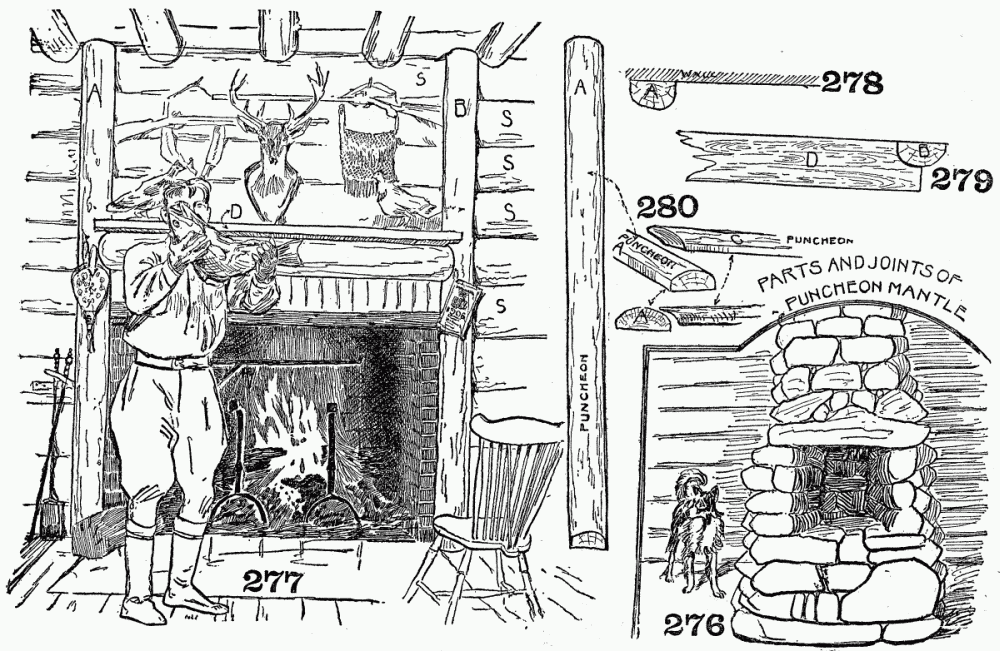 A
S
B
S
S
S
D
S
277
A
PUNCHEON
WALL
A
278
D
B
279
280
PUNCHEON
A
C
PUNCHEON
A
PARTS AND JOINTS OF
PUNCHEON MANTLE
276